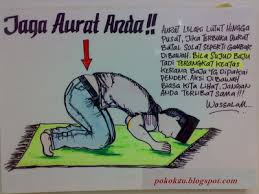 Jaga Aurat Anda!!
AURAT LELAKI LUTUT HINGGA
PUSAT, JIKA TERBUKA AURAT
BATAL SOLAT SEPERTI GAMBAR
DIBAWAH. BILA SUJUD BAJU
TADI TERANGKAT KEATAS
KERANA BAJU YG DIPAKAI
PENDEK. AKSI DI BAWAH
BIASA KITA LIHAT. JANGAN
ANDA TERLIBAT SAMA!!!
Wassalam...
pokok2u.blogspot.com